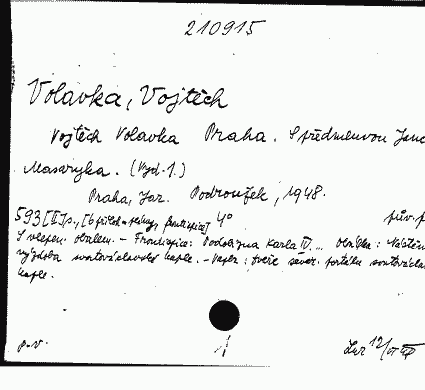 210915
Volavka, Vojtěch
Vojtěch Volavka Praha. S předmluvou Jana
Masaryka. (Vyd. 1.)
Praha, Jar. Podroužek, 1948.
593 [II] s., [6 příloh frontispice] 4° pův. p
S vlepen. obálem. - Frontispice: Podobizna Karla IV... Obálka: Nástěn
výzdoba svatováclavské kaple. - Vazba: dveře sever. portálu svatovácla
kaple.
p. v.
12/